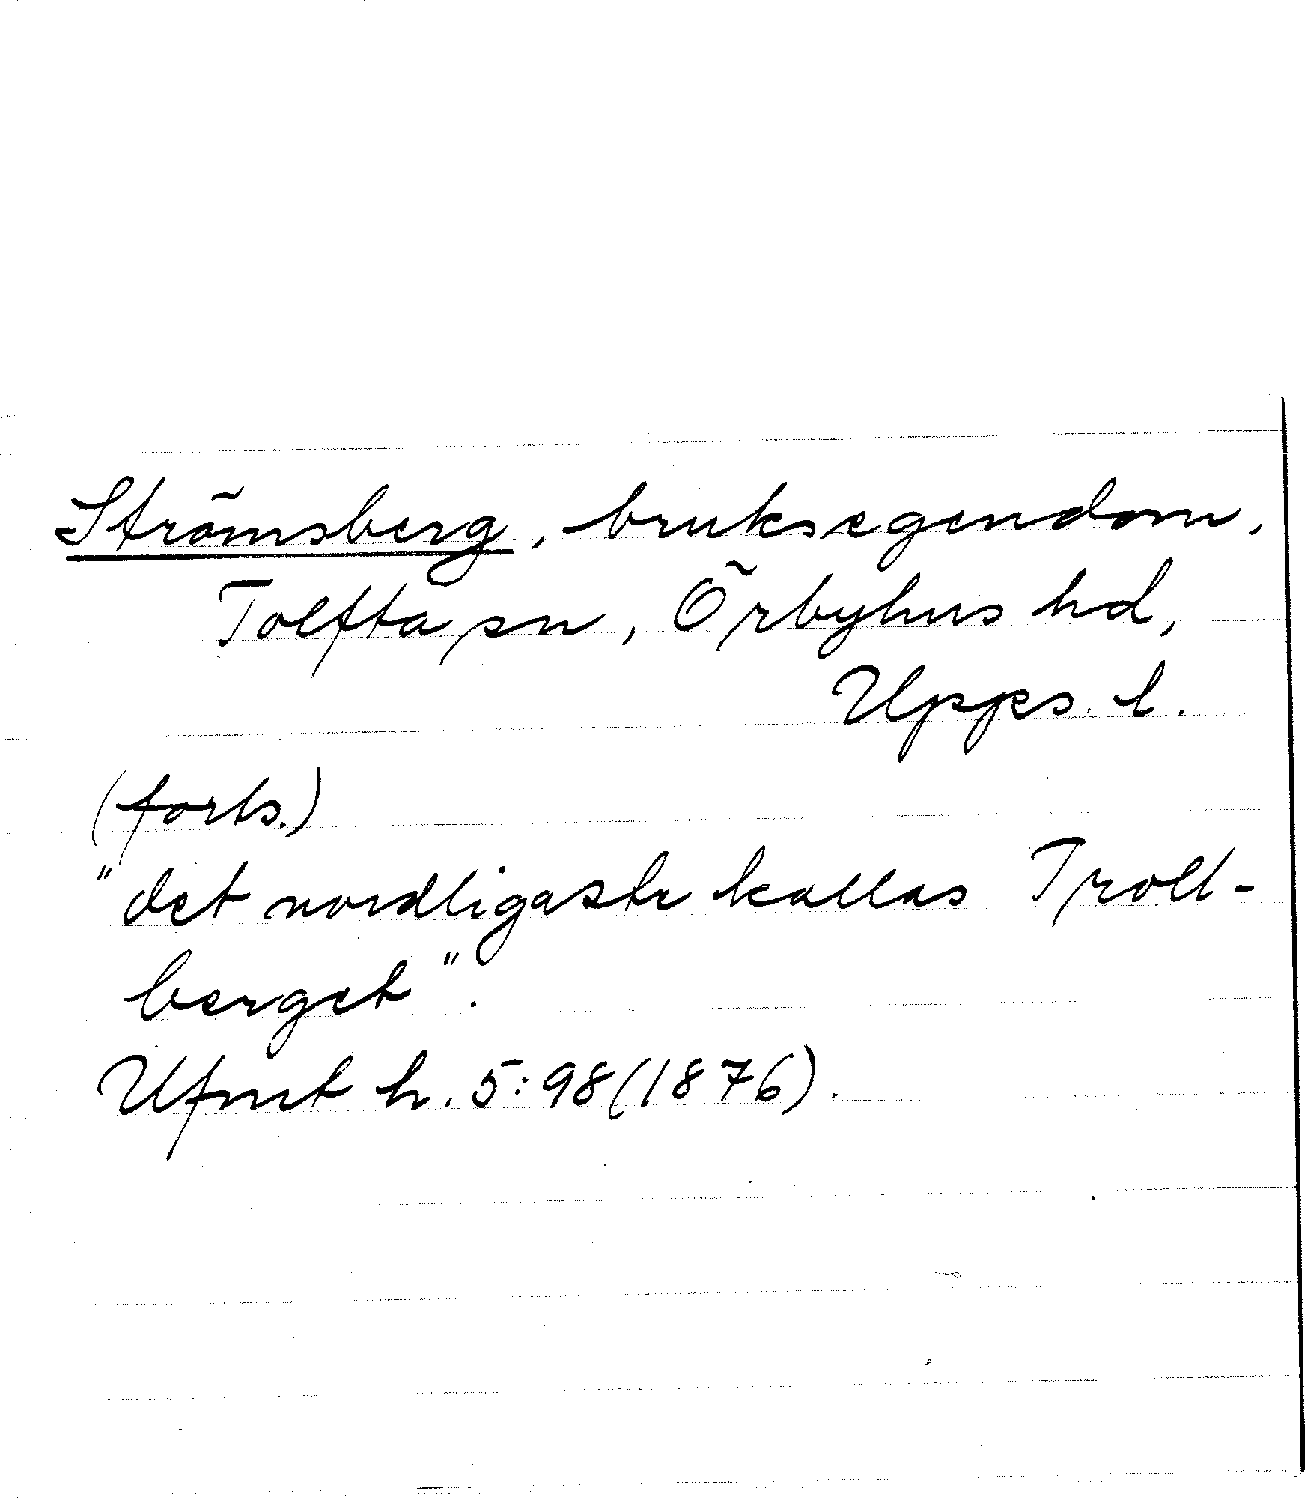 Strömsberg, bruksegendom,
Tolfta sn, Örbyhus hd,
Upps. l.
(forts.)
"det nordligaste kallas Troll-
berget".
Ufmt h. 5:98(1876).